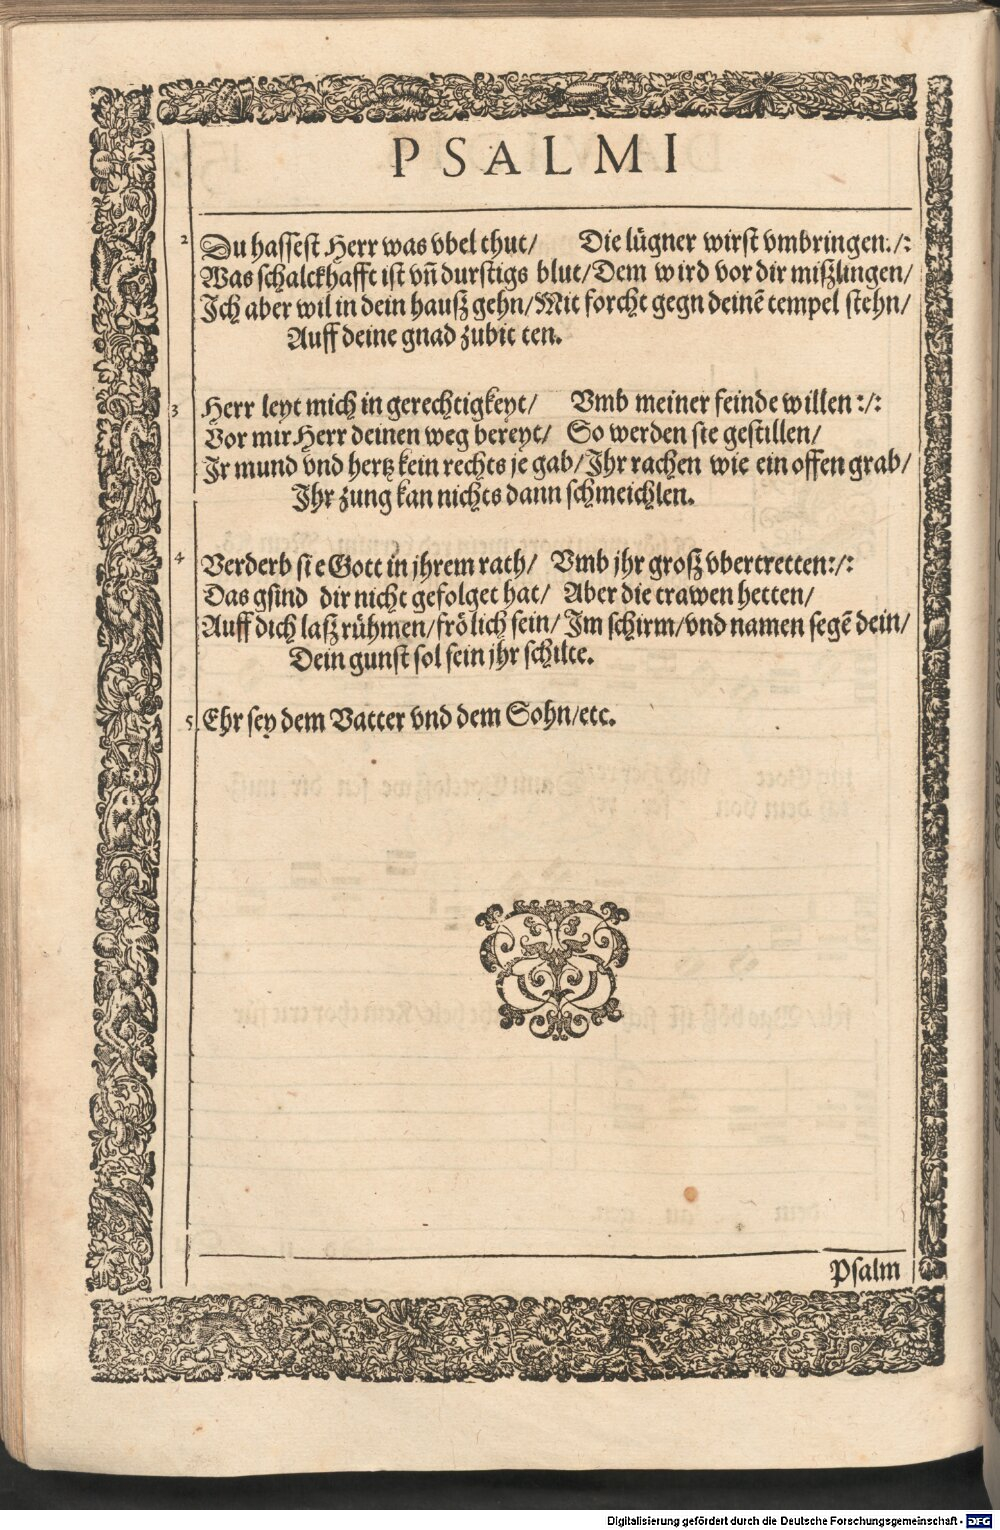 PSALMI
2 Du hassest Herr was vbel thut/ Die lügner wirst vmbringen:/:
Was schalckhafft ist vn̄ durstigs blut/ Dem wird vor dir miszlingen/
Ich aber wil in dein hausz gehn/ Mit forcht gegn deinē tempel stehn/
Auff deine gnad zubit ten.
3 Herr leyt mich in gerechtigkeyt/ Vmb meiner feinde willen:/:
Vor mir Herr deinen weg bereyt/ So werden sie gestillen/
Ir mund vnd hertz kein rechts je gab/ Ihr rachen wie ein offen grab/
Ihr zung kan nichts dann schmeichlen.
4 Verderb si e Gott in jhrem rath/ Vmb jhr grosz vbertretten:/:
Das gsind dir nicht gefolget hat/ Aber die trawen hetten/
Auff dich lasz rühmen/ frölich sein/ Im schirm/ vnd namen segē dein/
Dein gunst sol sein jhr schilte.
5. Ehr sey dem Vatter vnd dem Sohn/ etc.
Psalm
Digitalisierung gefördert durch die Deutsche Forschungsgemeinschaft - DFG